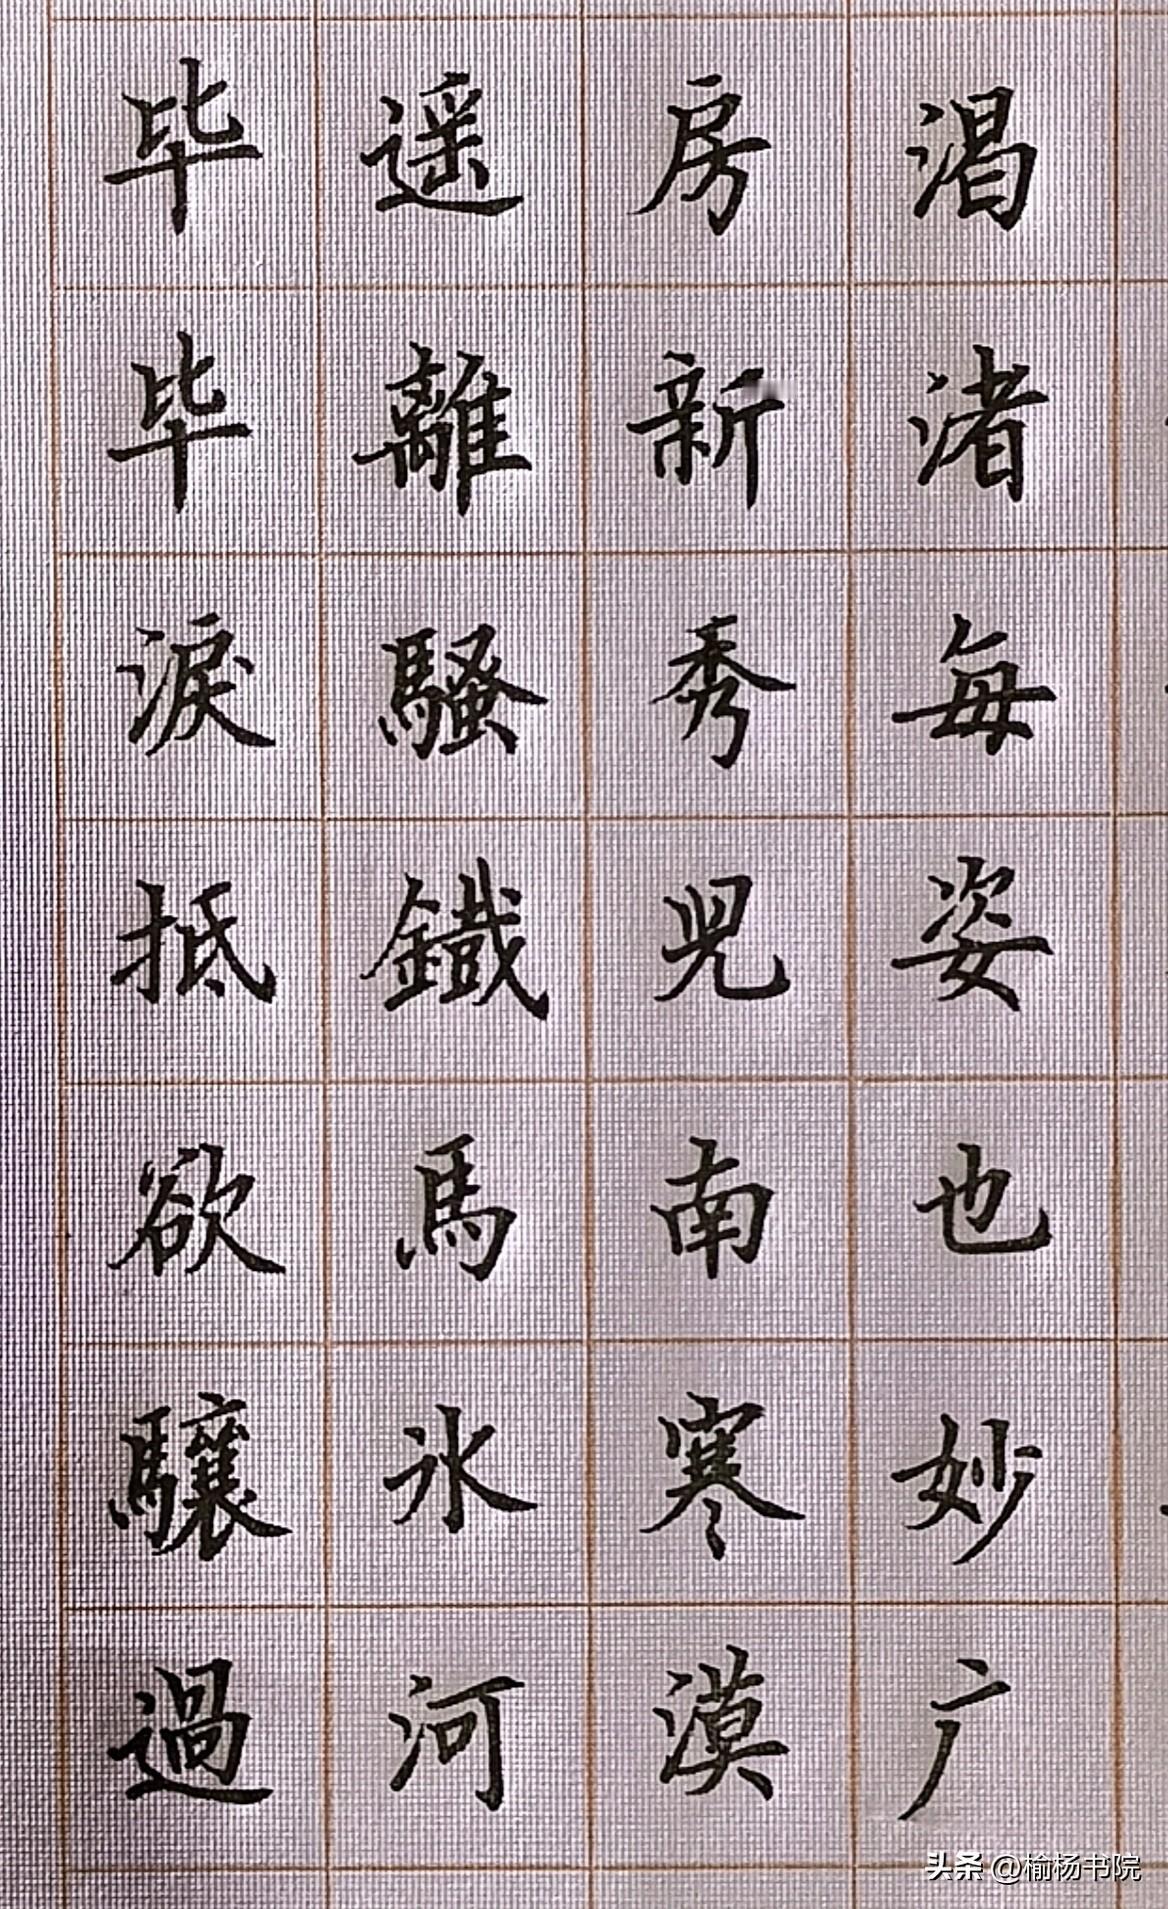 渴渚每姿也妙广
房新秀児南寒漠
遥離騷鐵馬氷河
毕毕淚抵欲驤過
头条 @榆杨书院